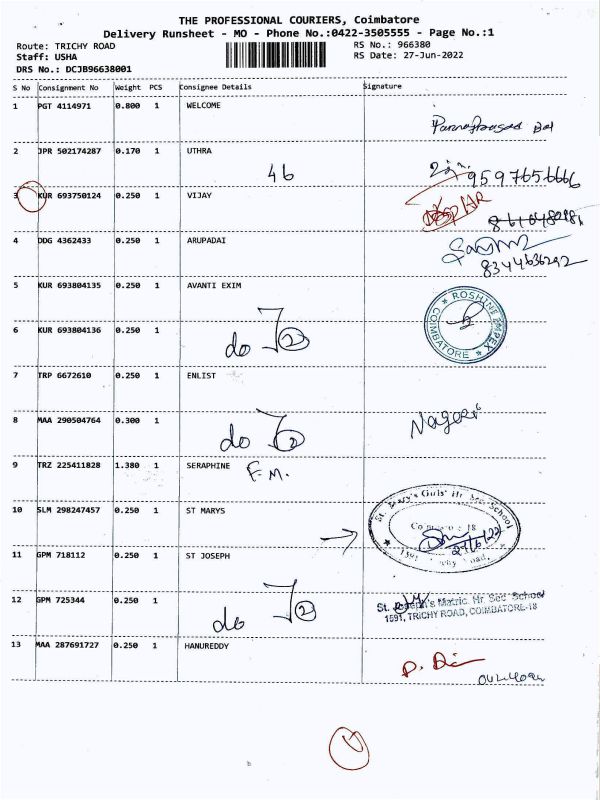 THE PROFESSIONAL COURIERS, Coimbatore
Delivery Runsheet - MO - Phone No.:0422-3505555 - Page No.:1
Route: TRICHY ROAD RS No.: 966380
Staff: USHA RS Date: 27-Jun-2022
DRS No.: DCJB96638001
S No Consignment No Weight PCS Consignee Details Signature
1 PGT 4114971 0.800 1 WELCOME
2 JPR 502174287 0.170 1 UTHRA
46 9597656666
3 KUR 693750124 0.250 1 VIJAY
4 DDG 4362433 0.250 1 ARUPADAI
8344636292
5 KUR 693804135 0.250 1 AVANTI EXIM
ROSHINE IMPEX COIMBATORE
6 KUR 693804136 0.250 1
do 2
7 TRP 6672610 0.250 1 ENLIST
8 MAA 290504764 0.300 1
do 2
9 TRZ 225411828 1.380 1 SERAPHINE F.M.
10 SLM 298247457 0.250 1 ST MARYS
St. Mary's Girls' Hr Sec School
18
27/6/22
11 GPM 718112 0.250 1 ST JOSEPH
12 GPM 725344 0.250 1
do 2
St. Joseph's Matric. Hr Sec School
1591, TRICHY ROAD, COIMBATORE-18
13 MAA 287691727 0.250 1 HANUREDDY